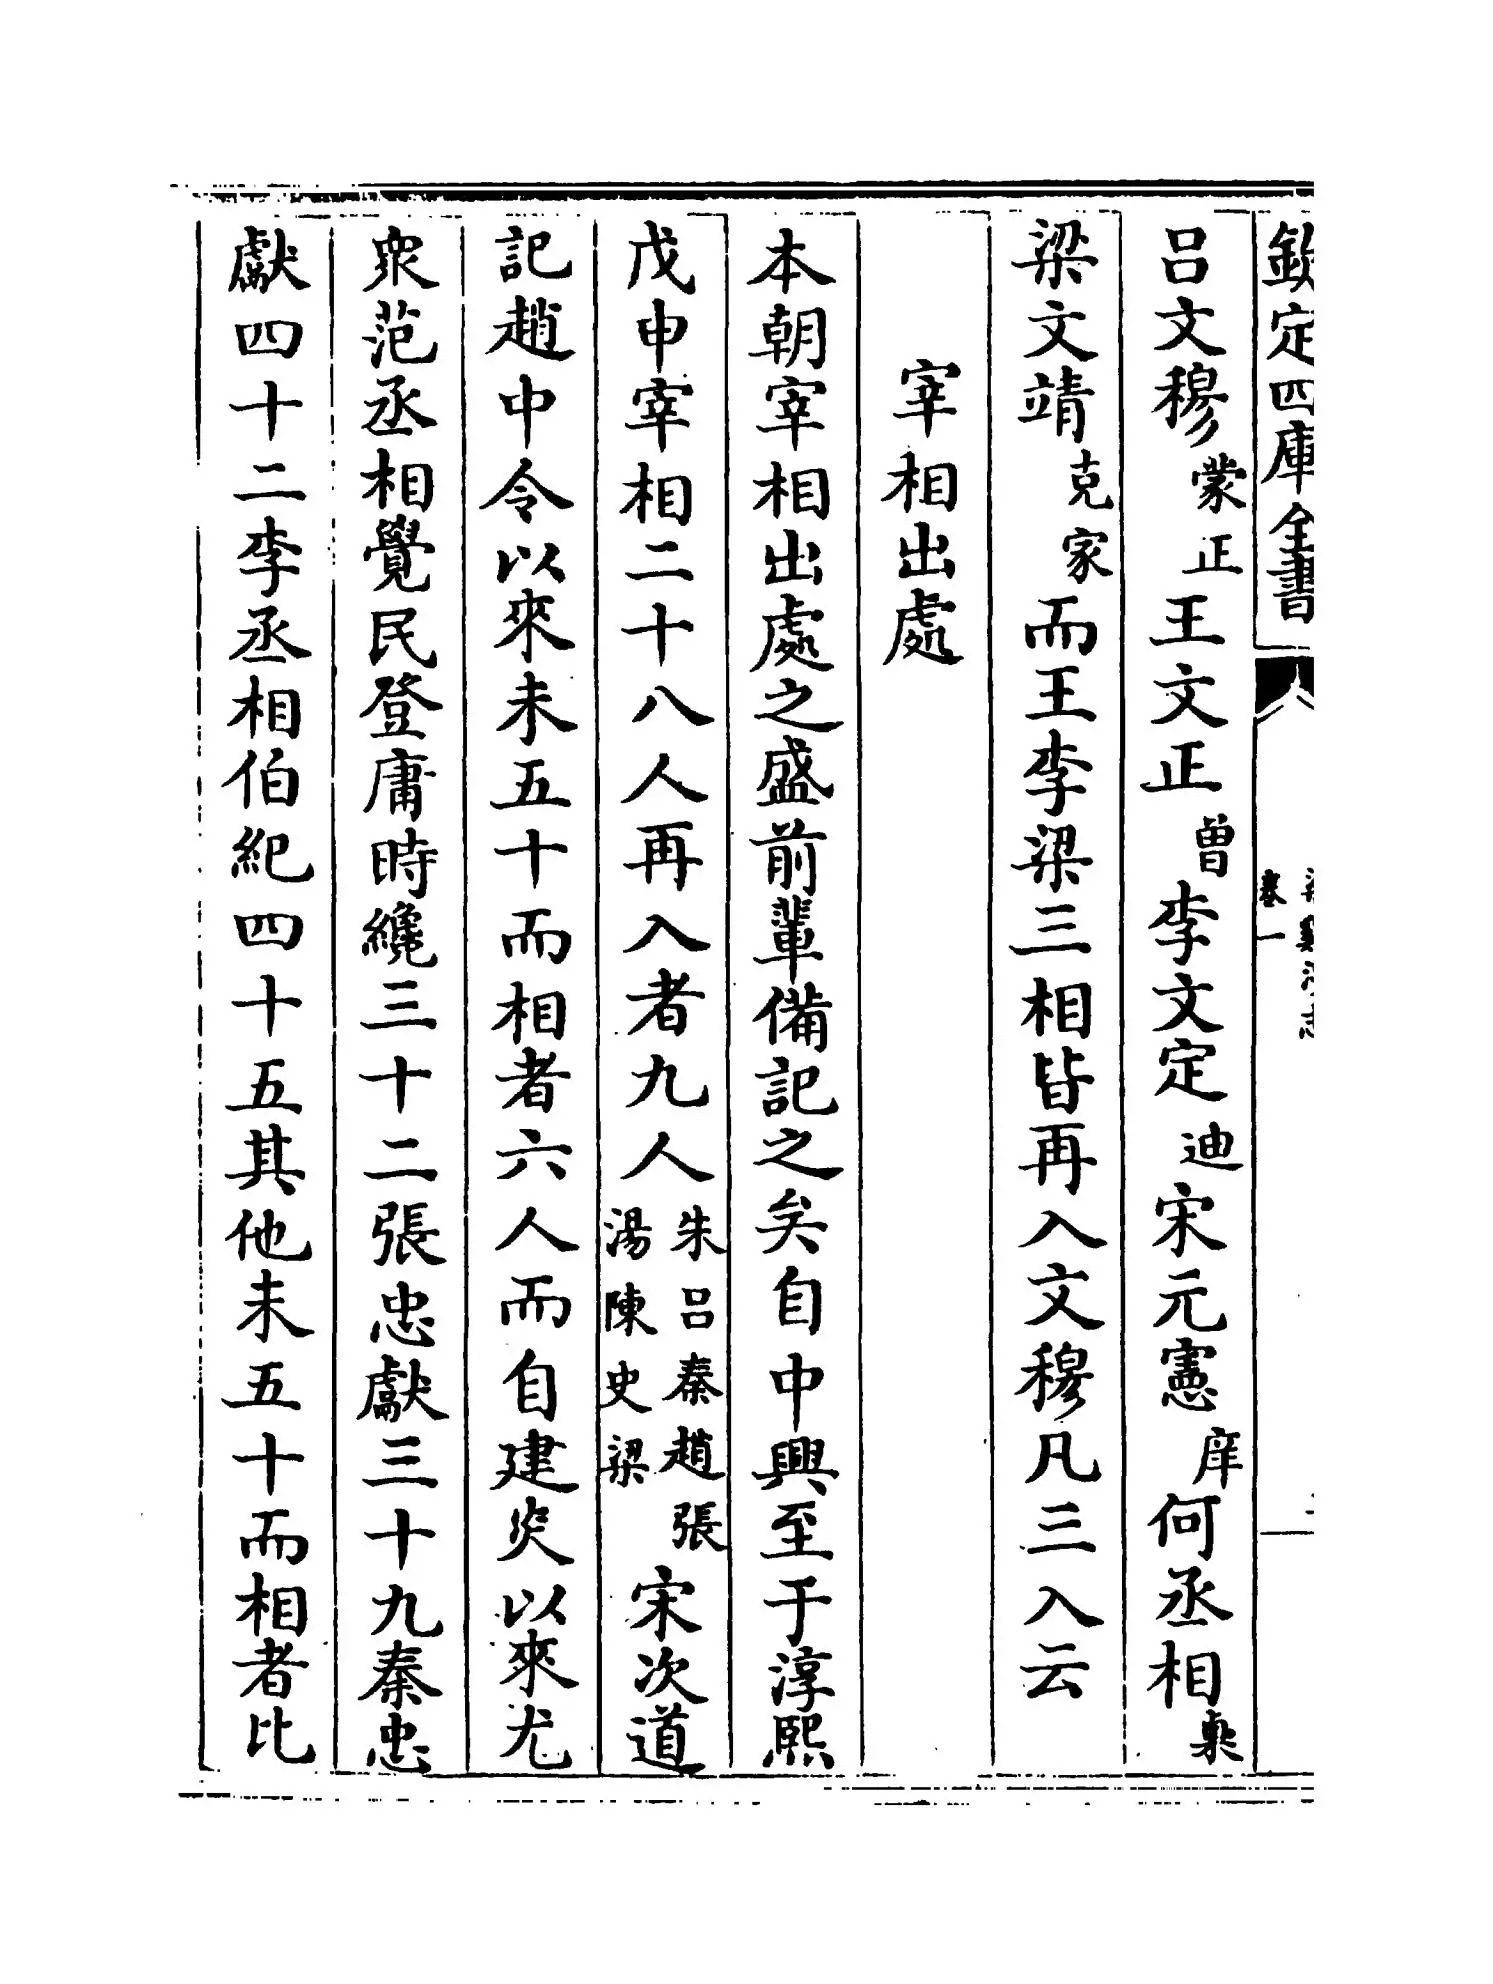 欽定四庫全書
卷一
呂文穆蒙正王文正曾李文定迪宋元憲庠何丞相㮚
梁文靖克家而王李梁三相皆再入文穆凡三入云
宰相出處
本朝宰相出處之盛前輩備記之矣自中興至于淳熙
戊申宰相二十八人再入者九人朱呂秦趙張湯陳史梁宋次道
記趙中令以來未五十而相者六人而自建炎以來尤
衆范丞相覺民登庸時纔三十二張忠獻三十九秦忠
獻四十二李丞相伯紀四十五其他未五十而相者比